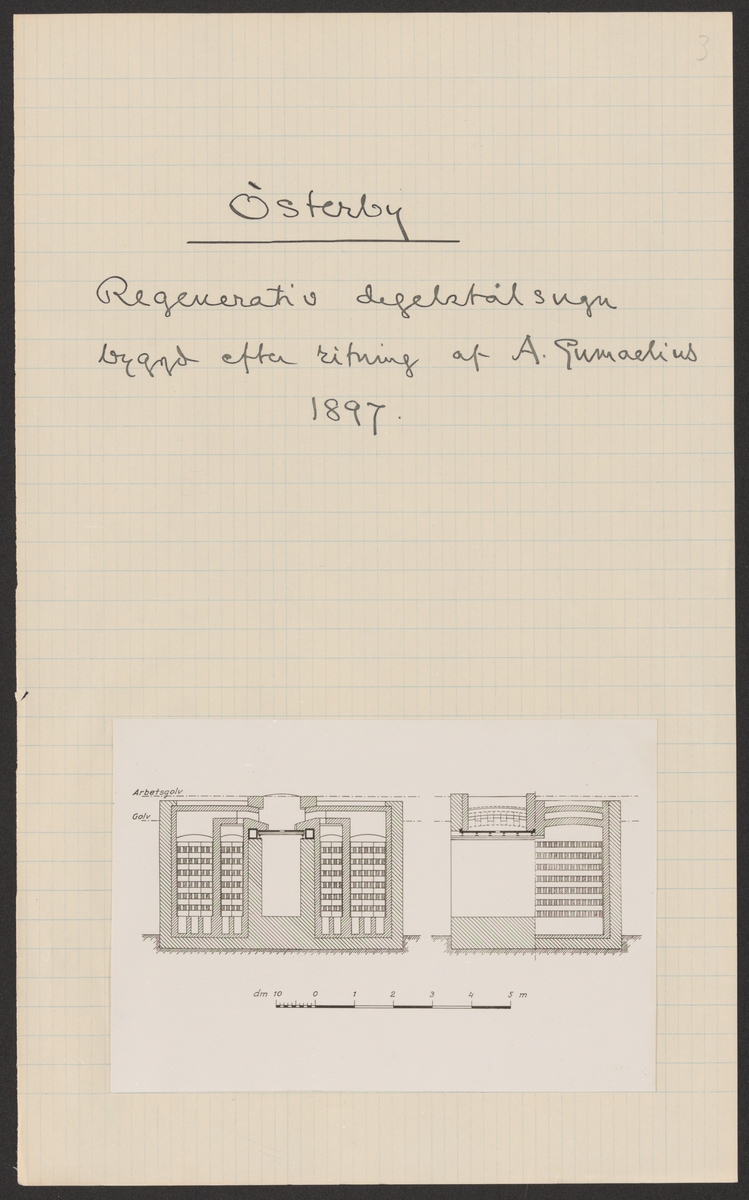 3
Österby
Regenerativ degelstålsugn
byggd efter ritning af A. Gumaelius
1897.
Arbetsgolv
Golv
dm 10 0 1 2 3 4 5 m